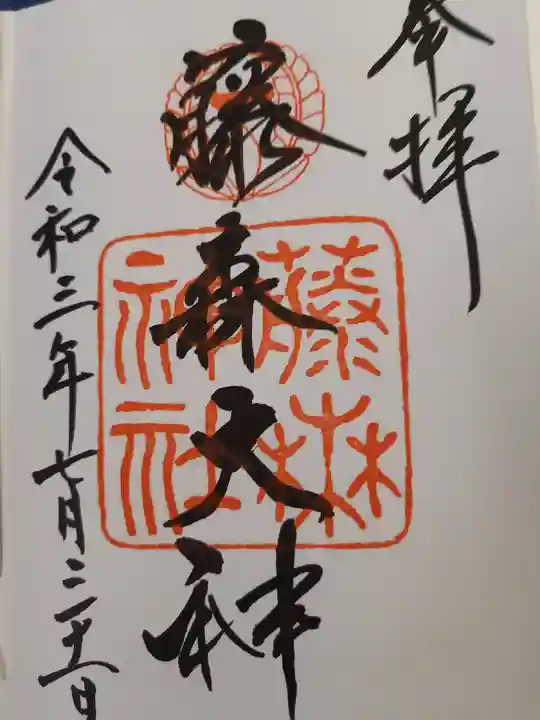 奉拝
藤森大神
藤森
神社
令和三年七月二十一日